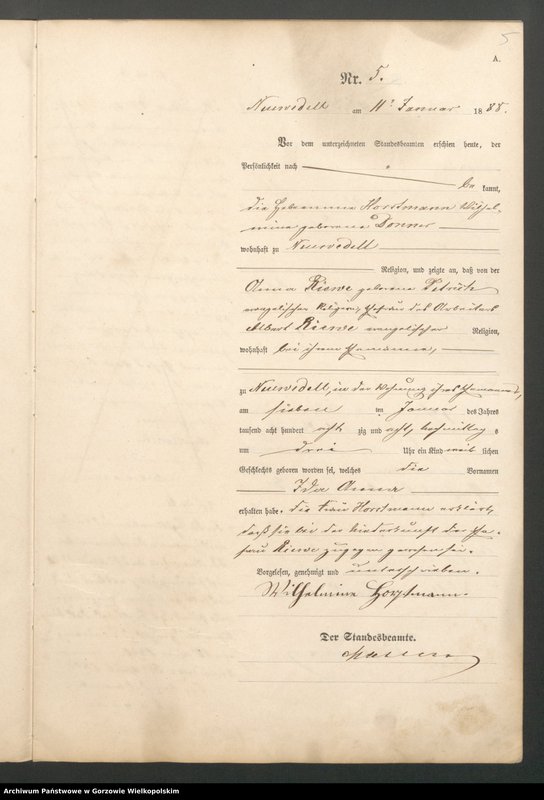 5
A.
Nr. 5.
Neuwedell am 11ᵗ Januar 1888.
Vor dem unterzeichneten Standesbeamten erschien heute, der
Persönlichkeit nach
be kannt,
die Hebeamme Horstmann Wilhel-
mine geborene Donner
wohnhaft zu Neuwedell
Religion, und zeigte an, daß von der
Anna Riewe geborene
evangelischer Religion, Ehefrau des Arbeiters
Albert Riewe evangelischer Religion,
wohnhaft bei ihrem Ehemanne,
zu Neuwedell, in der Wohnung ihres Ehemannes,
am sieben ten Januar des Jahres
tausend acht hundert acht zig und acht, Nachmittag s
um drei Uhr ein Kind weib lichen
Geschlechts geboren worden sei, welches die Vornamen
Ida Anna
erhalten habe. Die Frau Horstmann erklärt,
daß sie bei der Niederkunft der Ehe-
frau Riewe zugegen gewesen sei.
Vorgelesen, genehmigt und unterschrieben.
Wilhelmine Horstmann.
Der Standesbeamte.
Archiwum Państwowe w Gorzowie Wielkopolskim